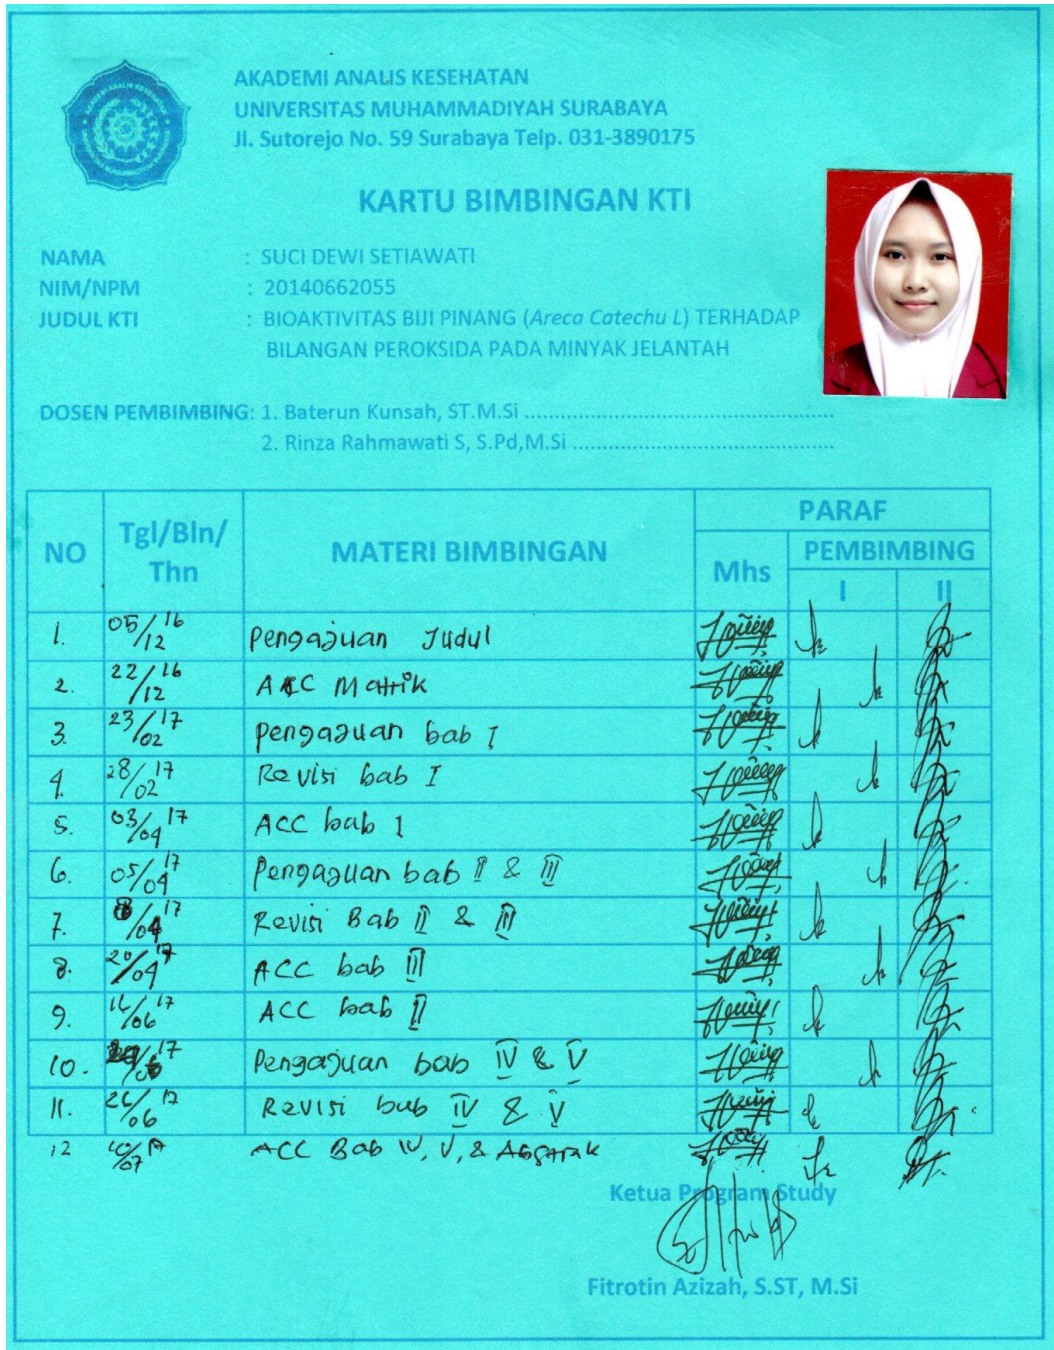 AKADEMI ANALIS KESEHATAN
UNIVERSITAS MUHAMMADIYAH SURABAYA
Jl. Sutorejo No. 59 Surabaya Telp. 031-3890175
KARTU BIMBINGAN KTI
NAMA : SUCI DEWI SETIAWATI
NIM/NPM : 20140662055
JUDUL KTI : BIOAKTIVITAS BIJI PINANG (Areca Catechu L) TERHADAP
BILANGAN PEROKSIDA PADA MINYAK JELANTAH
DOSEN PEMBIMBING: 1. Baterun Kunsah, ST.M.Si ....................................................
2. Rinza Rahmawati S, S.Pd,M.Si ............................................
NO Tgl/Bln/Thn MATERI BIMBINGAN PARAF
Mhs PEMBIMBING
I II
1. 05/12 16 Pengajuan Judul
2. 22/12 16 ACC Matrik
3. 23/02 17 Pengajuan bab I
4. 28/02 17 Revisi bab I
5. 03/04 17 ACC bab 1
6. 05/04 17 Pengajuan bab II & III
7. /04 17 Revisi Bab II & III
8. 20/04 17 ACC bab III
9. 16/06 17 ACC bab II
10. 17 Pengajuan bab IV & V
11. 26/06 17 Revisi bab IV & V
12 /07 17 ACC Bab IV, V, & Abstrak
Ketua Program Study
Fitrotin Azizah, S.ST, M.Si